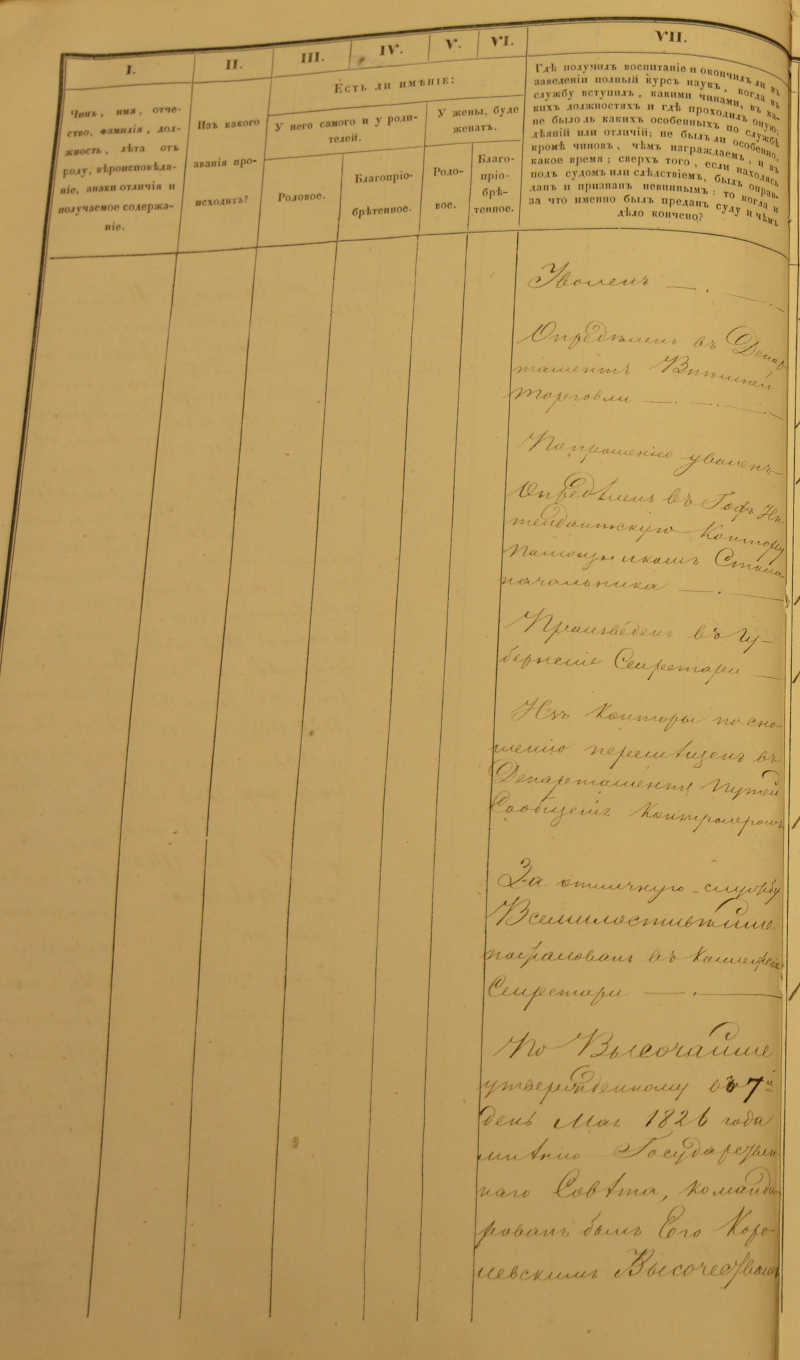 I.
II.
III.
IV.
V.
VI.
VII.
Чинъ, имя, отче-
ство, фамилія, дол-
жность, лѣта отъ
роду, вѣроисповѣда-
ніе, знаки отличія и
получаемое содержа-
ніе.
Изъ какого
званія про-
исходитъ?
Есть ли имѣніе:
У него самого и у роди-
телей.
У жены, буде
женатъ.
Родовое.
Благопріо-
брѣтенное.
Родо-
вое.
Благо-
пріо-
брѣ-
тенное.
Гдѣ получилъ воспитаніе и окончилъ ли въ
заведеніи полный курсъ наукъ, когда въ
службу вступилъ, какими чинами, въ ка-
кихъ должностяхъ и гдѣ проходилъ оную;
не было ль какихъ особенныхъ по службѣ
дѣяній или отличій; не былъ ли особенно,
кромѣ чиновъ, чѣмъ награждаемъ, и въ
какое время; сверхъ того, если находясь
подъ судомъ или слѣдствіемъ, былъ оправ-
данъ и признанъ невиннымъ: то когда и
за что именно былъ преданъ суду и чѣмъ
дѣло кончено?
Уволенъ
Опредѣленъ въ Депар-
таментъ Внѣшней
Торговли
По прошенію уволенъ
Опредѣленъ въ Гофъ Ин-
тендантскую Контору
Помощникомъ Столо-
начальника
Произведенъ въ Гу-
бернскіе Секретари
Изъ Конторы по сно-
шенію перемѣщенъ въ
Департаментъ Путей
Сообщенія Контролеромъ
За отличную службу
Всемилостивѣйше
пожалованъ въ Коллежскіе
Секретари
По Высочайше
утвержденному въ 7й
день Мая 1826 года
мнѣнію Государствен-
наго Совѣта, команди-
рованъ былъ Его Коро-
левскимъ Высочествомъ